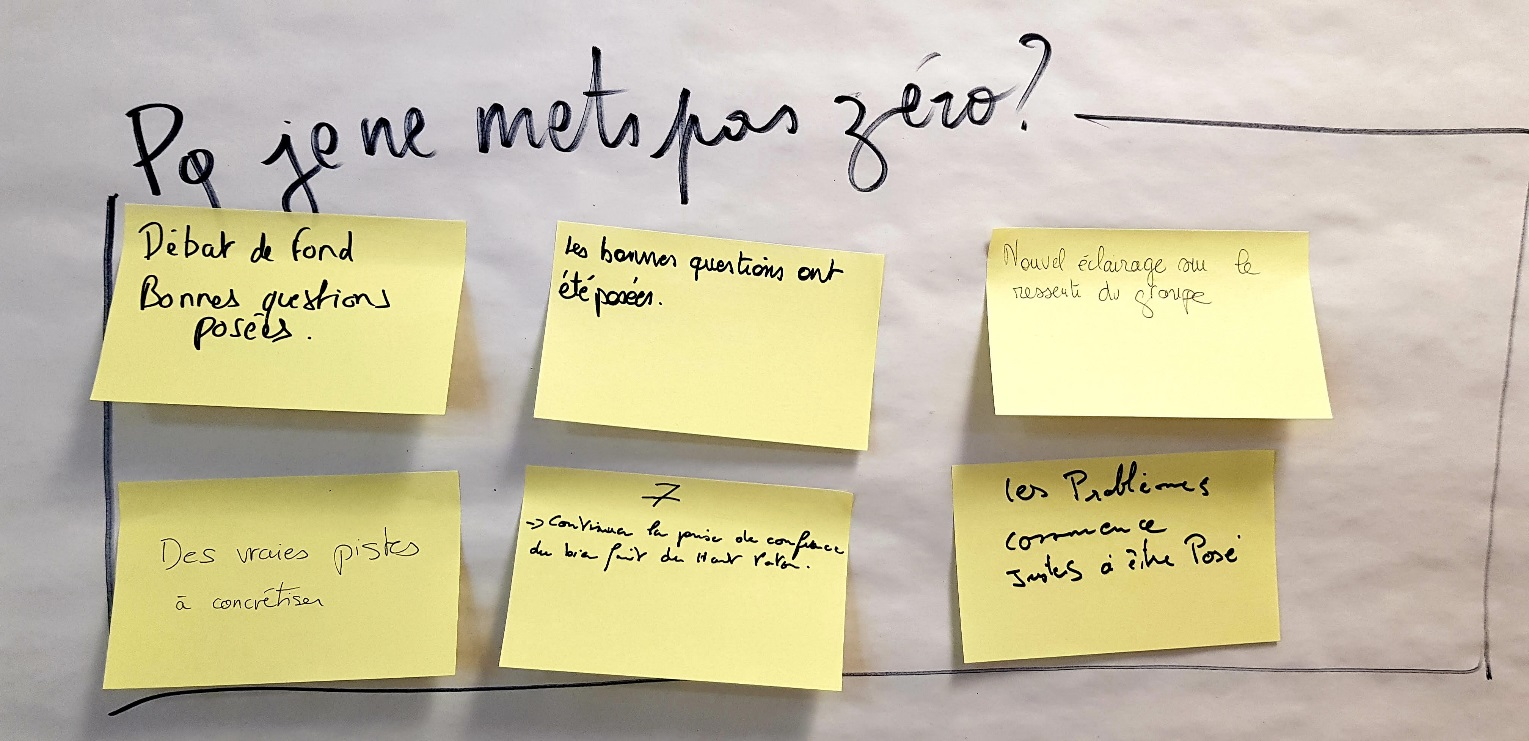 Pq je ne mets pas zéro?
Débat de fond
Bonnes questions
posées.
Les bonnes questions ont
été posées.
Nouvel éclairage sur le
ressenti du groupe
Des vraies pistes
à concrétiser
7
-> Continuer la prise de confiance
du bien fait du Haut
les Problèmes
commence
Justes à être Posé